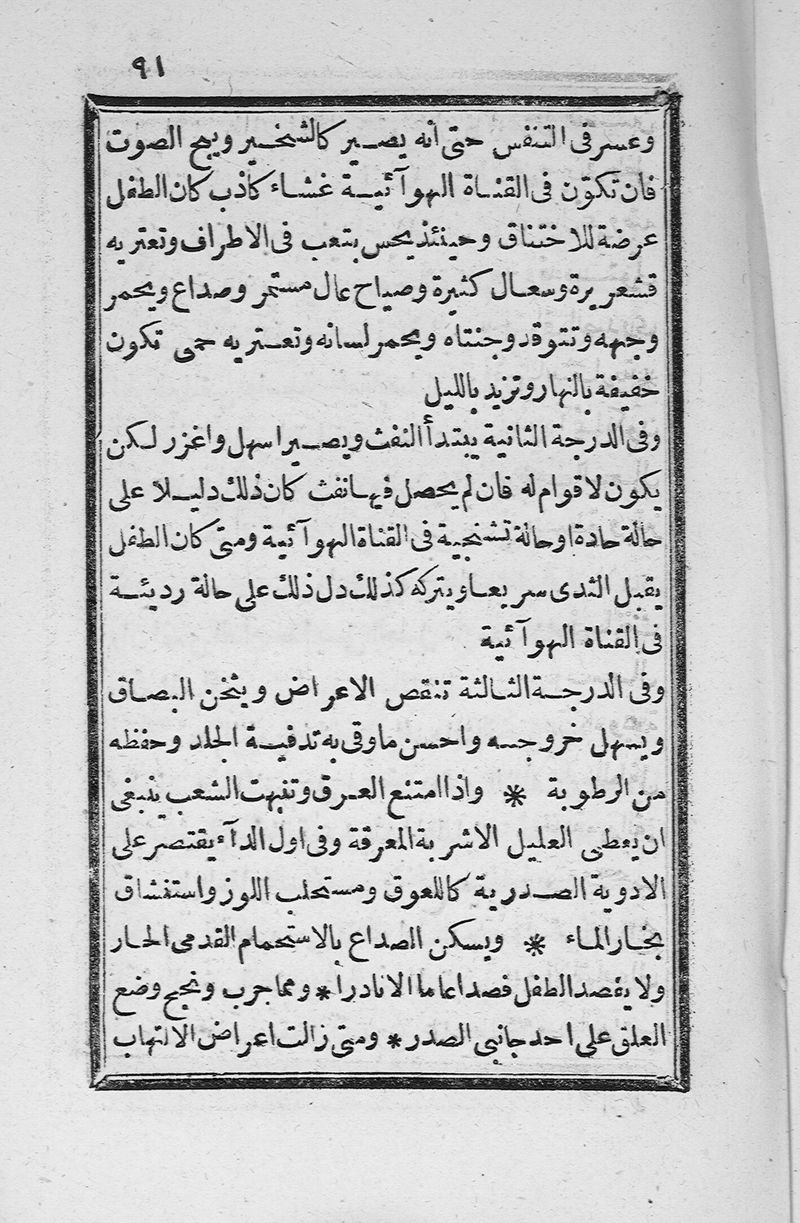 ٩١
وعسر فى التنفس حتى انه يصير كالشخير ويبح الصوت
فان تكوّن فى القناة الهوآئية غشاء كاذب كان الطفل
عرضة للاختناق وحينئذ يحس بتعب فى الاطراف وتعتريه
قشعريرة وسعال كثيرة وصياح عال مستمر وصداع ويحمر
وجهه وتتوقد وجنتاه ويحمر لسانه وتعتريه حمى تكون
خفيفة بالنهار وتزيد بالليل
وفى الدرجة الثانية يبتدأ النفث ويصير اسهل واغزر لكن
يكون لاقوام له فان لم يحصل فيها نفث كان ذلك دليلا على
حالة حادة او حالة تشنجية فى القناة الهوآئية ومتى كان الطفل
يقبل الثدى سريعا ويتركه كذلك دل ذلك على حالة رديئة
فى القناة الهوآئية
وفى الدرجة الثالثة تنقص الاعراض ويثخن البصاق
ويسهل خروجه واحسن ماوقى به تدفية الجلد وحفظه
من الرطوبة * واذا امتنع العرق وتنبهت الشعب ينبغى
ان يعطى العليل الاشربة المعرقة وفى اول الدآء يقتصر على
الادوية الصدرية كاللعوق ومستحلب اللوز واستنشاق
بخار الماء * ويسكن الصداع بالاستحمام القدمى الحار
ولا يفصد الطفل فصدا عاما الا نادرا * ومما جرب ونجح وضع
العلق على احد جانبى الصدر * ومتى زالت اعراض الالتهاب